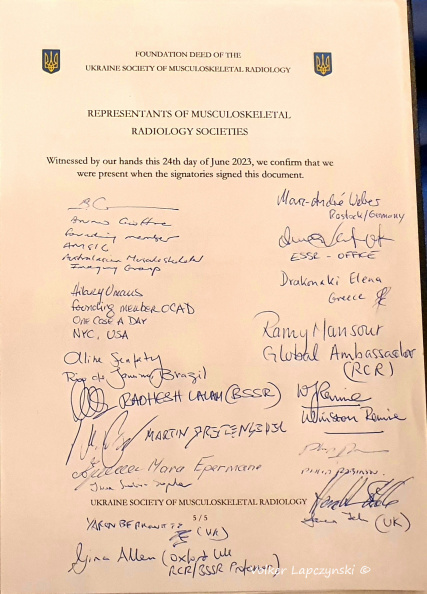 FOUNDATION DEED OF THE
UKRAINE SOCIETY OF MUSCULOSKELETAL RADIOLOGY
REPRESENTANTS OF MUSCULOSKELETAL
RADIOLOGY SOCIETIES
Witnessed by our hands this 24th day of June 2023, we confirm that we
were present when the signatories signed this document.
founding member
AMSIG
Australasian Musculoskeletal
Imaging Group
Hilary Umans
founding member OCAD
ONE CASE A DAY
NYC, USA
Rio de Janeiro/Brazil
RADHESH LALAM (BSSR)
MARTIN
Mara Epermane
Marc-André Weber
Rostock/Germany
ESSR - OFFICE
Drakonaki Elena
Greece
Ramy Mansour
Global Ambassador
(RCR)
Winston Rennie
PHILIP ROBINSON
UKRAINE SOCIETY OF MUSCULOSKELETAL RADIOLOGY
5/5
(UK)
(UK)
Gina Allen (Oxford UK
RCR/BSSR Professor)
Volker Lapczynski ®